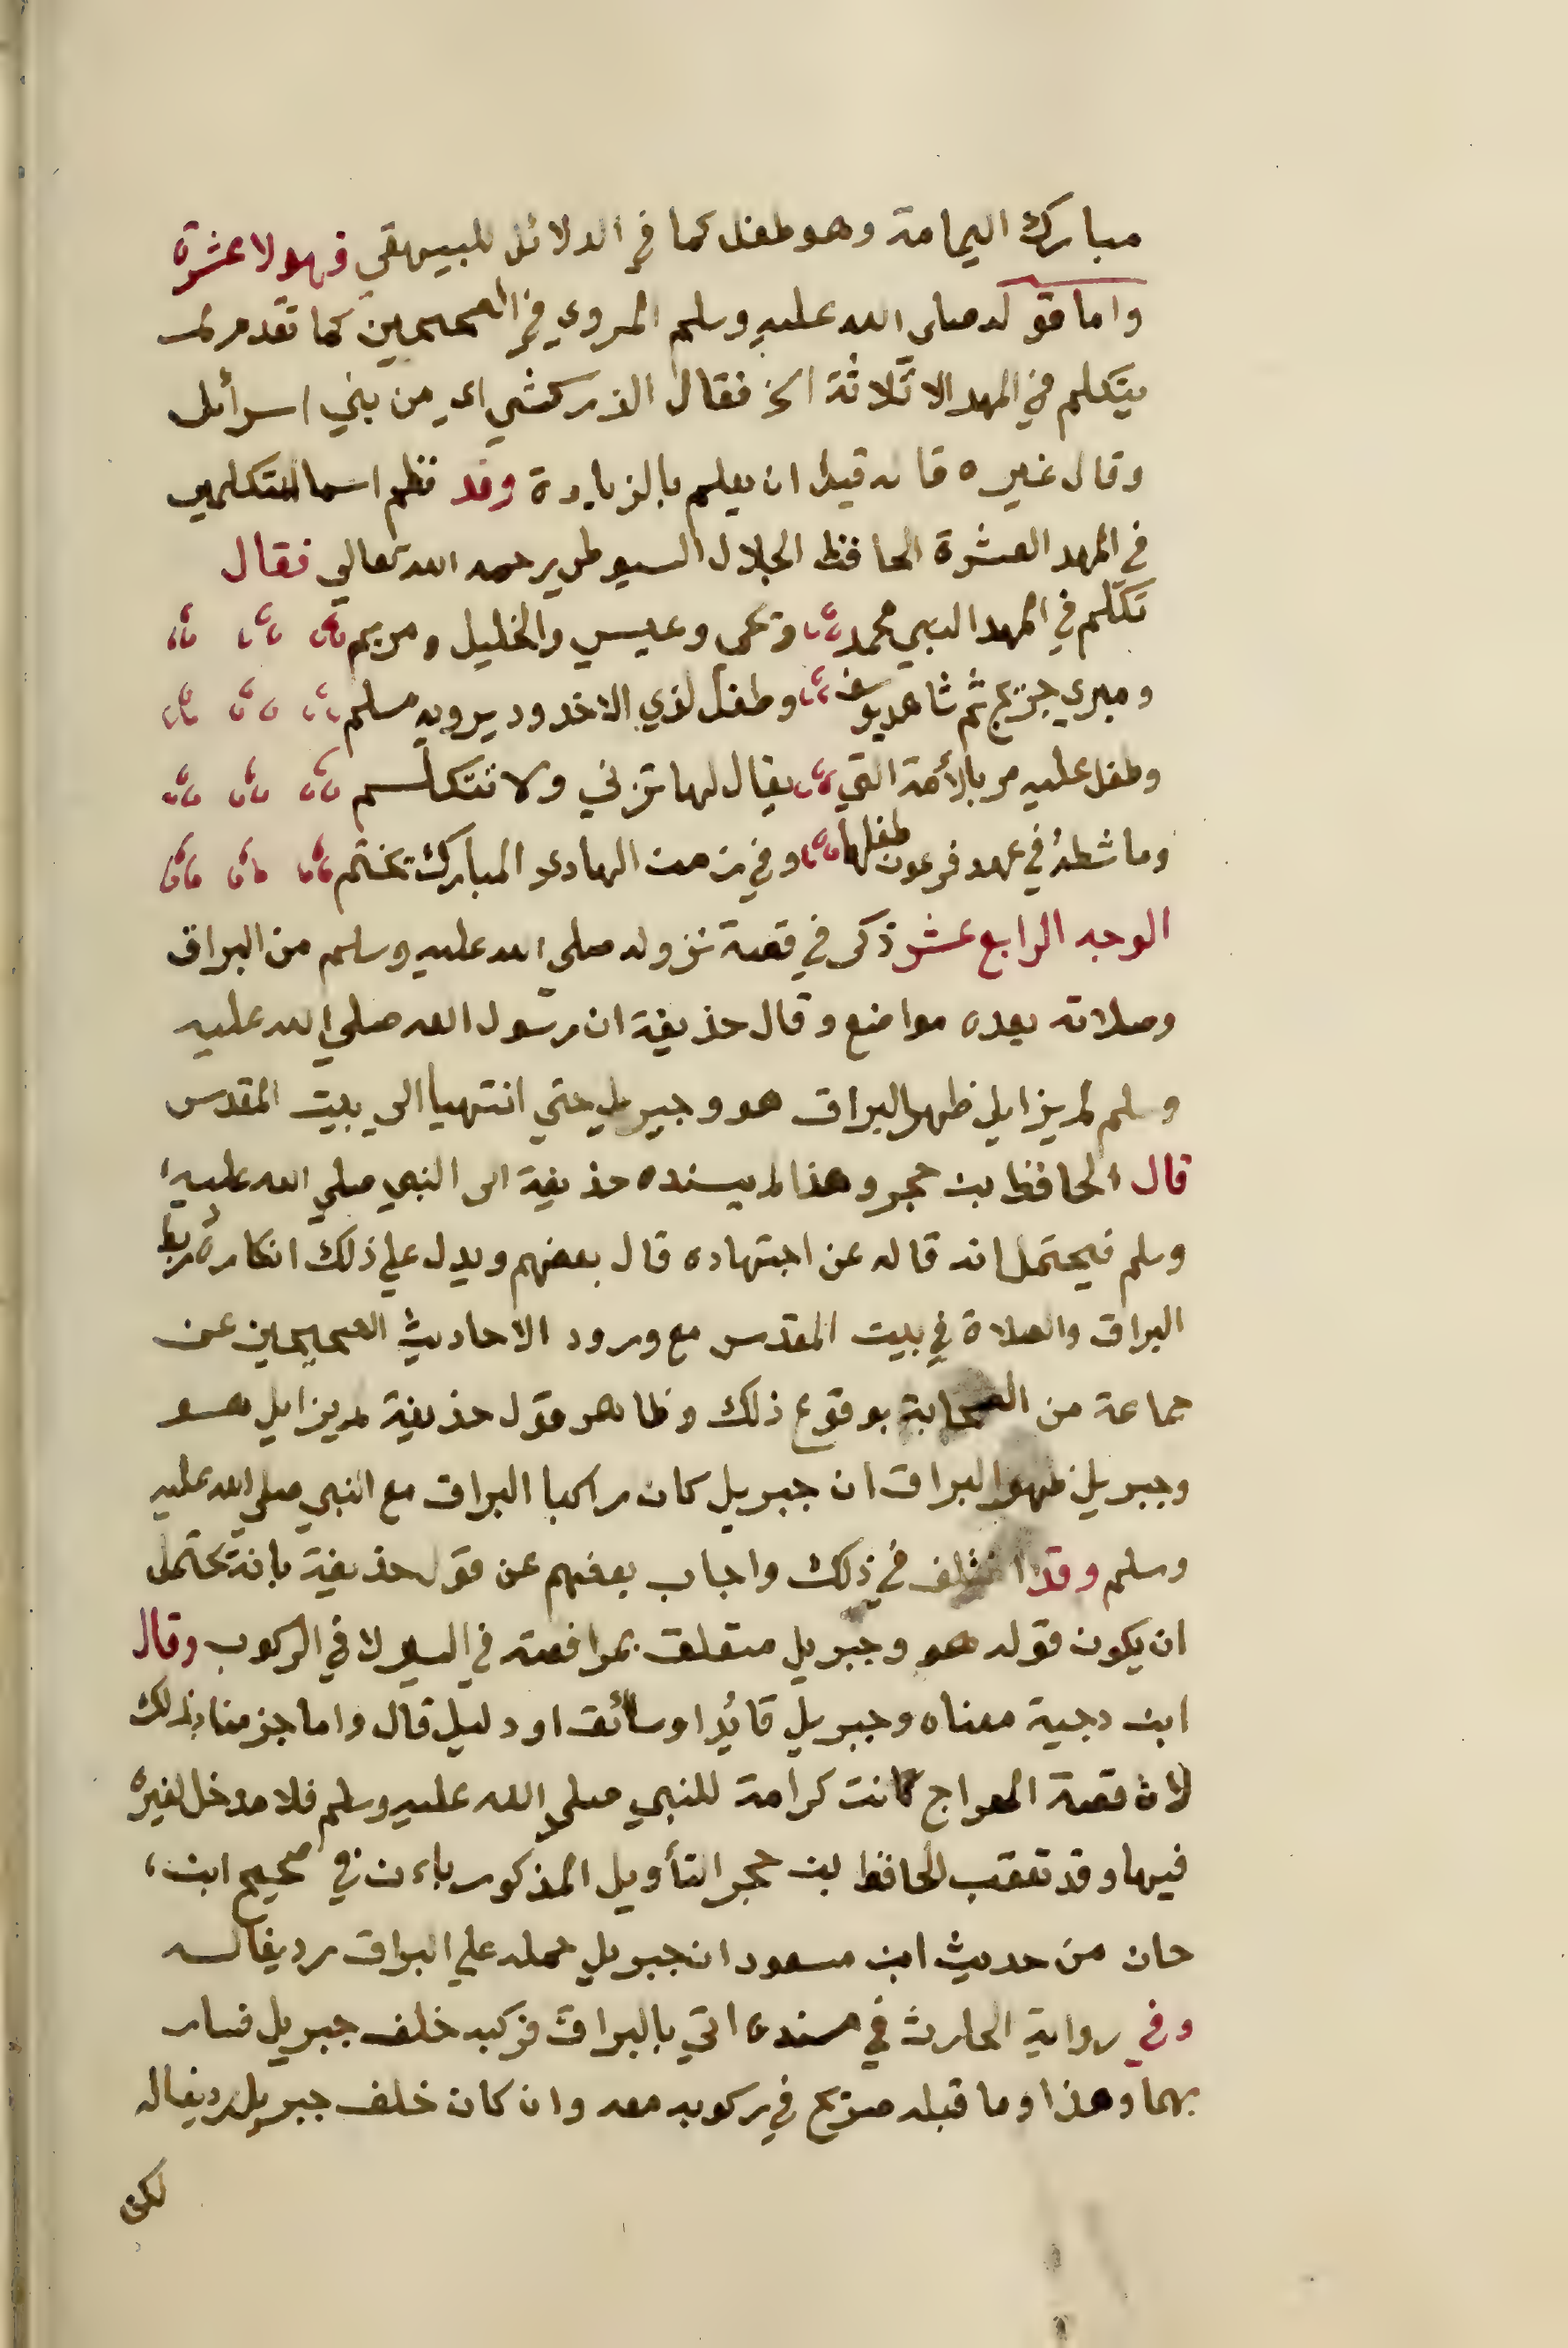 مبارك اليمامة وهو طفل كما في الدلائل للبيهقي فهولا عشرة
واما قوله صلى الله عليه وسلم المروي في الصحيحين كما تقدم لم
يتكلم في المهد الا ثلاثة الخ فقال الزركشي اي من بني اسرائل
وقال غيره قاله قبل ان يعلم بالزيادة وقد نظم اسما المتكلمين
في المهد العشرة الحافظ الجلال السيوطي رحمه الله تعالي فقال
تكلم في المهد النبي محمد ويحي وعيسي والخليل ومريم
ومبري جريج ثم شاهد يوسف وطفل لذي الاخدود يرويه مسلم
وطفل عليه مر بالأمة التي يقال لها تزني ولا تتكلم
وماشطة في عهد فرعون طفلها وفي زمن الهادي المبارك تختم
الوجه الرابع عشر ذكر في قصة نزوله صلي الله عليه وسلم من البراق
وصلاته بعده مواضع وقال حذيفة ان رسول الله صلي الله عليه
وسلم لم يزايل ظهر البراق هو وجبريل حتي انتهيا الي بيت المقدس
قال الحافظ بن حجر وهذا لم يسنده حذيفة الى النبي صلي الله عليه
وسلم فيحتمل انه قاله عن اجتهاده قال بعضهم ويدل علي ذلك انكاره ربط
البراق والصلاة في بيت المقدس مع ورود الاحاديث الصحيحين عن
جماعة من الصحابة بوقوع ذلك وظاهر قول حذيفة لم يزايل هو
وجبريل ظهر البراق ان جبريل كان راكبا البراق مع النبي صلي الله عليه
وسلم وقد اختلف في ذلك واجاب بعضهم عن قول حذيفة بانه يحتمل
ان يكون قوله هو وجبريل متعلق بمرافقته في السير لا في الركوب وقال
ابن دحية معناه وجبريل قائدا وسائق او دليل قال واما جزمنا بذلك
لان قصة المعراج كانت كرامة للنبي صلي الله عليه وسلم فلا مدخل لغيره
فيها وقد تعقب الحافظ بن حجر التأويل المذكور بان في صحيح ابن
حان من حديث ابن مسعود ان جبريل حمله علي البراق رديفا له
وفي رواية الحارث في مسنده اتي بالبراق فركبه خلف جبريل فسار
بهما وهذا وما قبله صريح في ركوبه معه وان كان خلف جبريل رديفا له
لكن